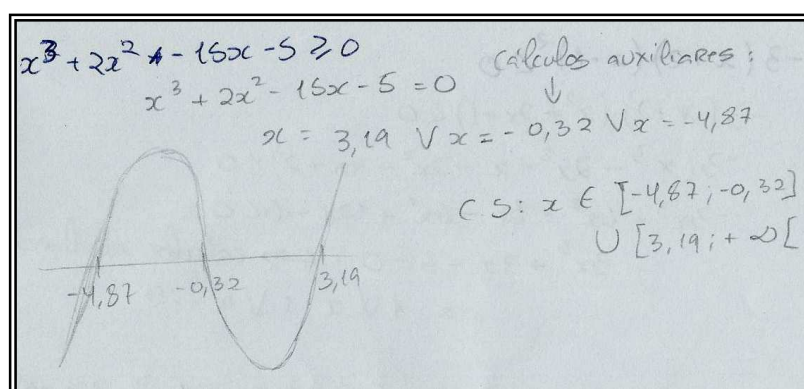 x³ + 2x² - 15x - 5 ≥ 0
cálculos auxiliares :
x³ + 2x² - 15x - 5 = 0
x = 3,19 ∨ x = - 0,32 ∨ x = -4,87
C S: x ∈ [-4,87 ; -0,32]
∪ [3,19 ; + ∞ [
-4,87 -0,32 3,19